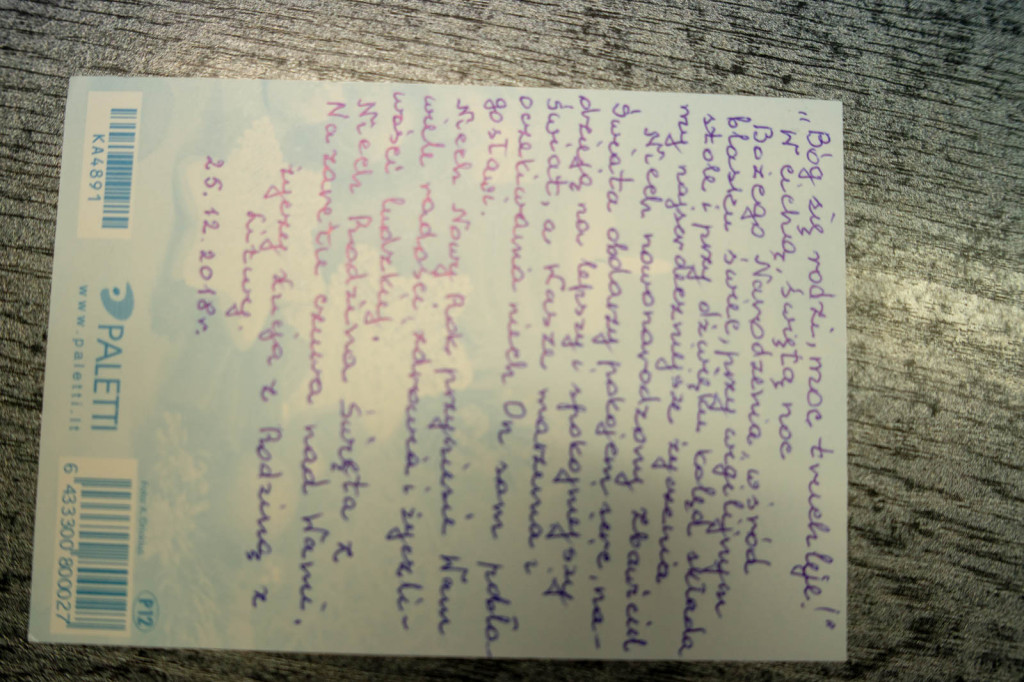 "Bóg się rodzi, moc truchleje!"
W cichą, świętą noc
Bożego Narodzenia, wśród
blasku świec, przy wigilijnym
stole i przy dźwięku kolęd składa
my najserdeczniejsze życzenia.
Niech nowonarodzony zbawiciel
Świata obdarzy pokojem serc, na-
dzieją na lepszy i spokojniejszy
świat, a Wasze marzenia i
oczekiwania niech On sam pobło-
gosławi.
Niech Nowy Rok przyniesie Wam
wiele radości, zdrowia i życzli-
wości ludzkiej.
Niech Rodzina Święta z
Nazaretu czuwa nad Wami.
życzy z Rodziną z
Litwy.
26.12.2018r.
KA4891
PALETTI
www.paletti.lt
6 433300 800027
P12